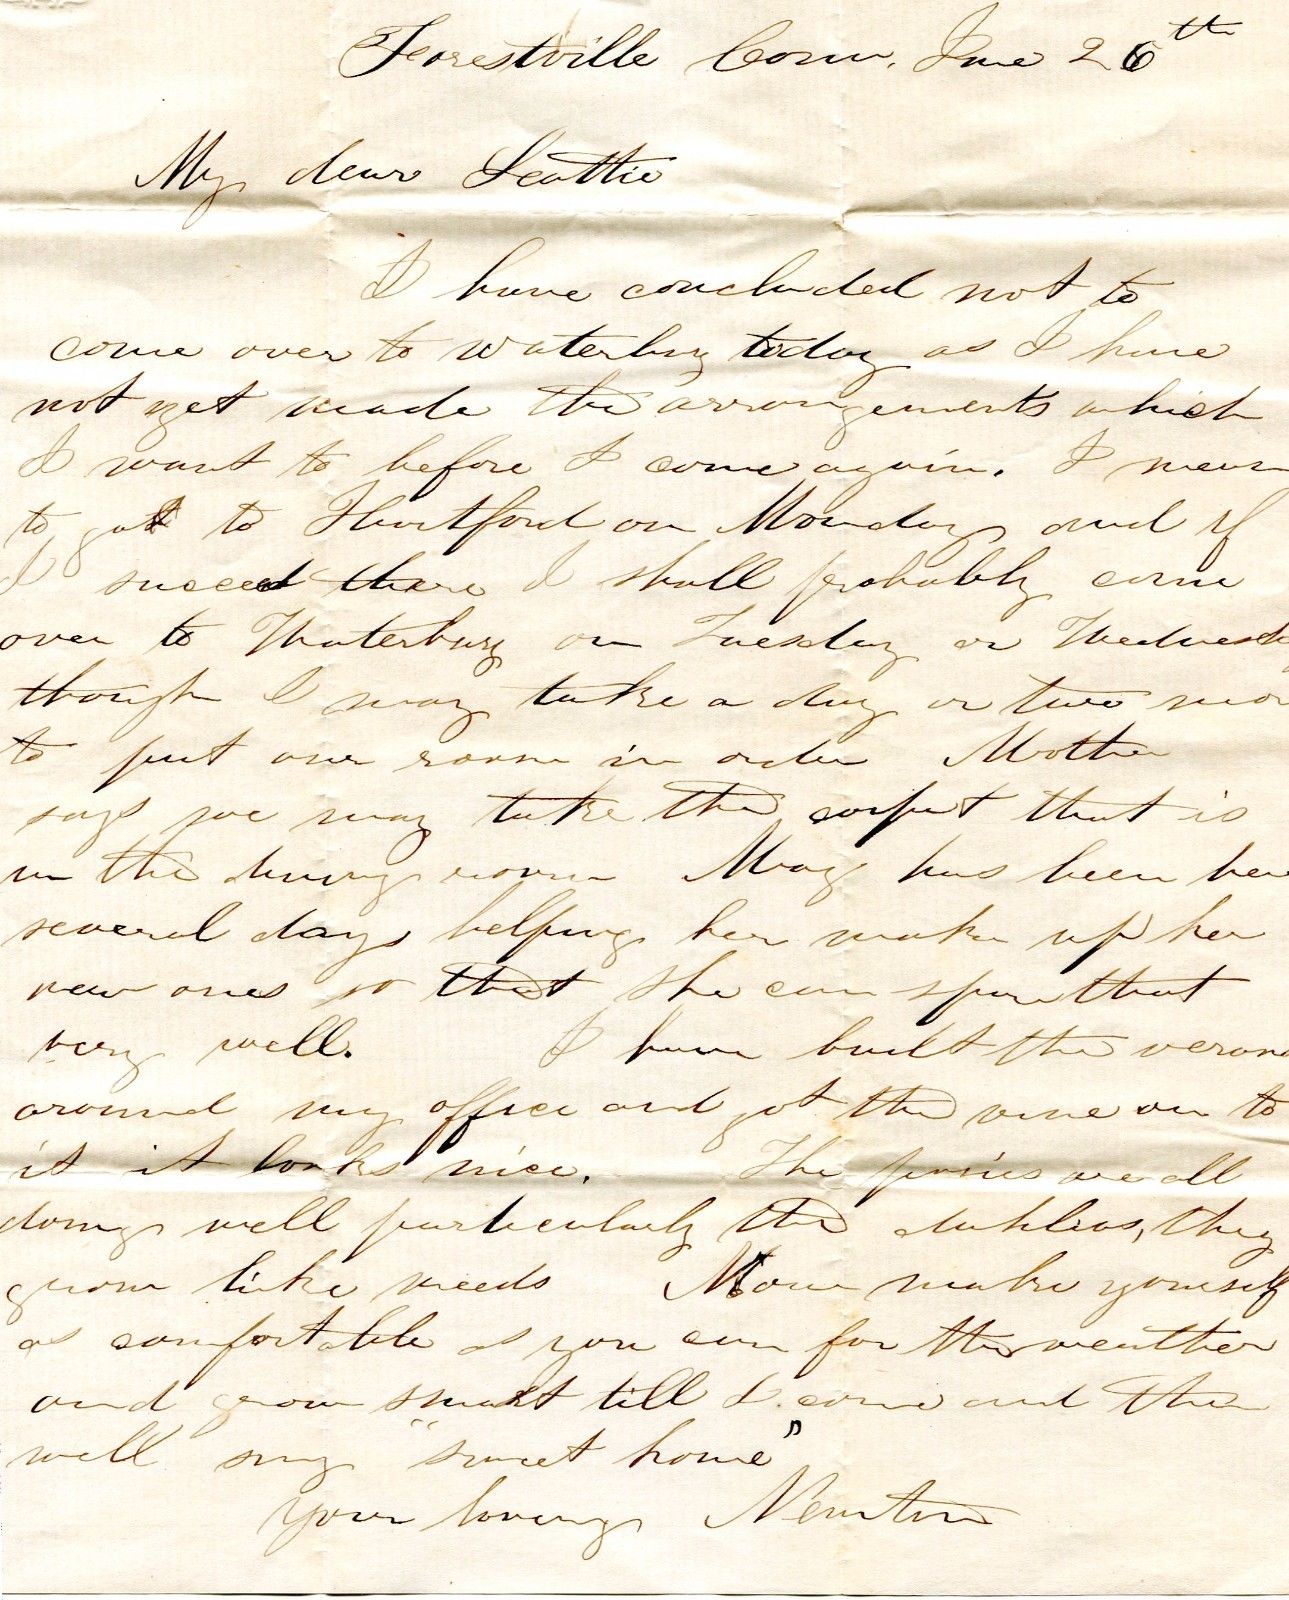 Forestville Conn. June 26th
My dear Leattie
I have concluded not to
come over to Waterbury today as I have
not yet made the arrangements which
I want to before I come again. I mean
to go to Hartford on Monday and if
I succeed there I shall probably come
over to Waterbury on Tuesday or Wednesd
though I may take a day or two mor
to put our room in order Mother
says we may take the carpet that is
in the dining room Mary has been her
several days helping her make up her
new ones so that she can spare that
very well. I have built the veran
around my office and got the vine on to
it it looks nice. The posies are all
doing well particularly the dahlias, they
grow like weeds Now make yourself
as comfortable as you can for the weather
and grow smart till I come and then
well sing "sweet home"
your loving Newton